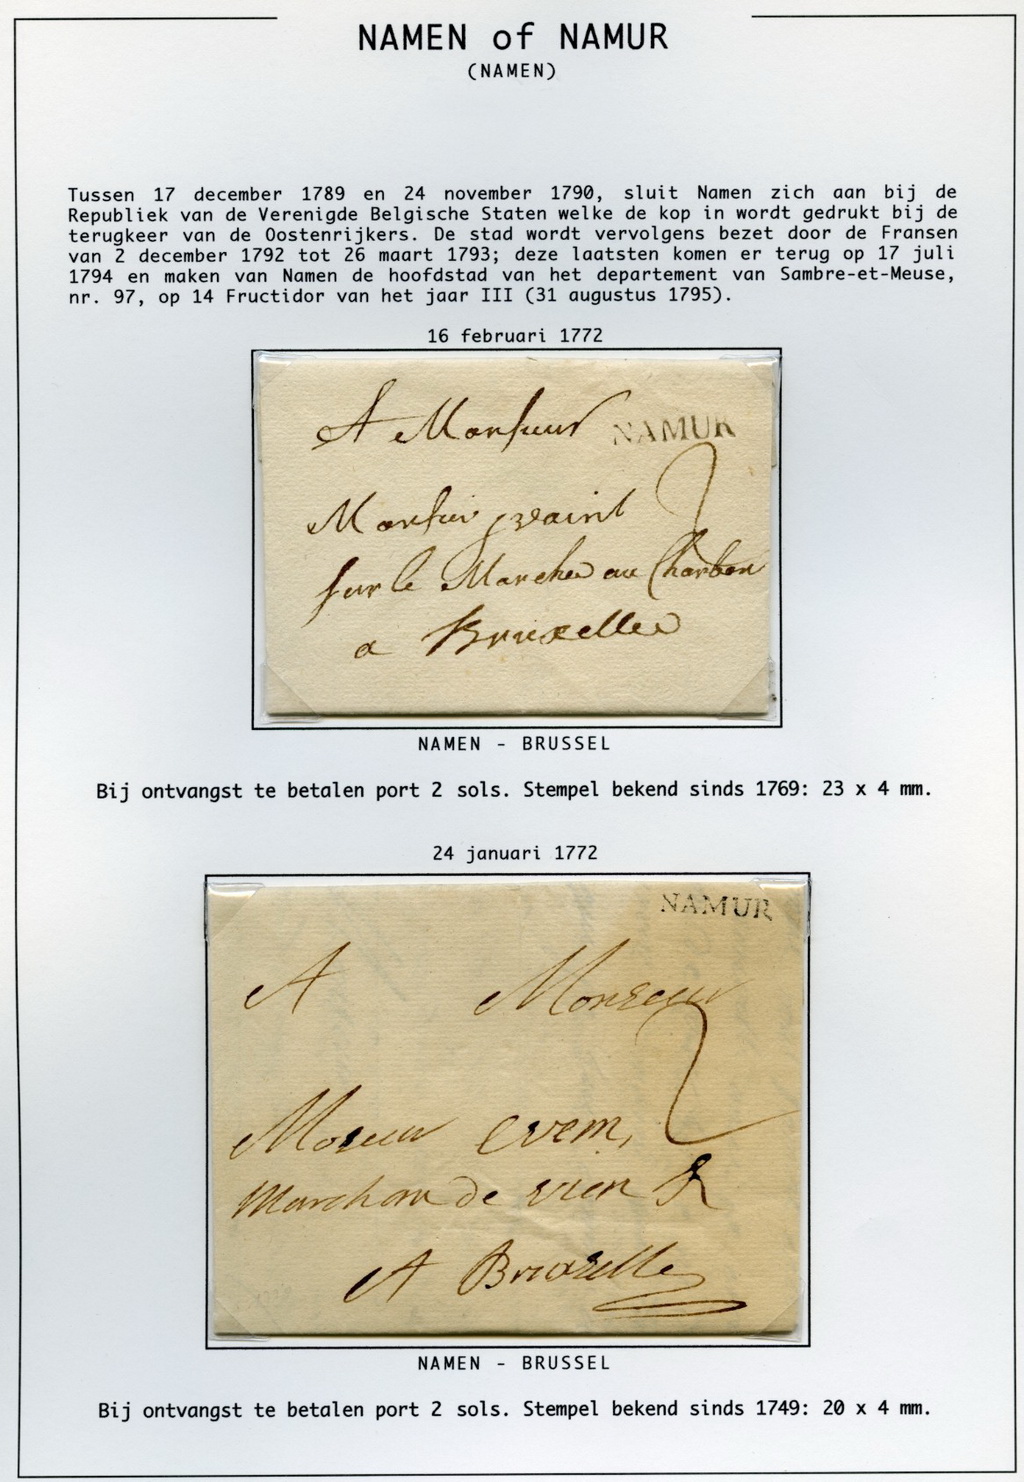 NAMEN of NAMUR
(NAMEN)
Tussen 17 december 1789 en 24 november 1790, sluit Namen zich aan bij de
Republiek van de Verenigde Belgische Staten welke de kop in wordt gedrukt bij de
terugkeer van de Oostenrijkers. De stad wordt vervolgens bezet door de Fransen
van 2 december 1792 tot 26 maart 1793; deze laatsten komen er terug op 17 juli
1794 en maken van Namen de hoofdstad van het departement van Sambre-et-Meuse,
nr. 97, op 14 Fructidor van het jaar III (31 augustus 1795).
16 februari 1772
A Monsieur NAMUR
2
Monsieur
sur le Marche au Charbon
a Bruxelles
NAMEN - BRUSSEL
Bij ontvangst te betalen port 2 sols. Stempel bekend sinds 1769: 23 x 4 mm.
24 januari 1772
NAMUR
A Monsieur
2
evem,
Marchan de
A Bruxelle
NAMEN - BRUSSEL
Bij ontvangst te betalen port 2 sols. Stempel bekend sinds 1749: 20 x 4 mm.